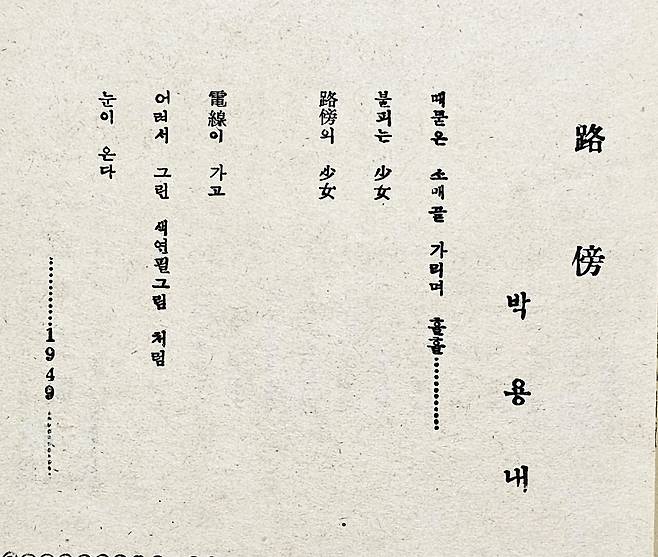 路傍
박용내
때묻은 소매를 가리며 훌훌…………
불피는 少女
路傍의 少女
電線이 가고
어려서 그린 색연필그림 처럼
눈이 온다
…………1949…………